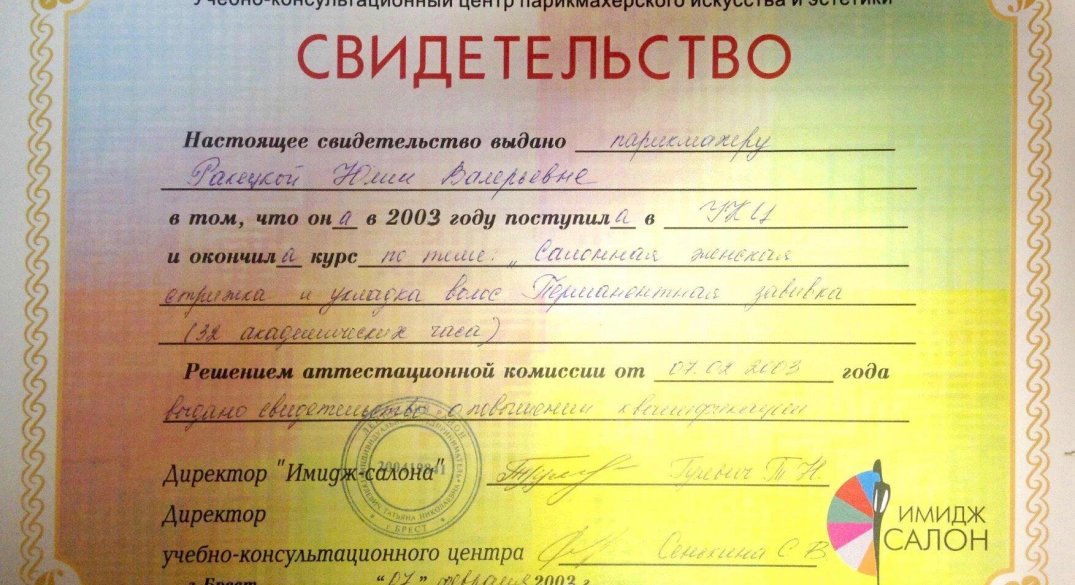 Учебно-консультационный центр парикмахерского искусства и эстетики
СВИДЕТЕЛЬСТВО
Настоящее свидетельство выдано парикмахеру
Ракецкой Юлии Валерьевне
в том, что она в 2003 году поступила в УКЦ
и окончила курс по теме: „Салонная женская
стрижка и укладка волос Перманентная завивка
(32 академических часа)
Решением аттестационной комиссии от 07.02 2003 года
выдано свидетельство о повышении квалификации
Директор "Имидж-салона" Гулевич Т Н.
Директор
учебно-консультационного центра Сенькина С В
г.Брест "07" февраля 2003 г.
ИМИДЖ
САЛОН
ТАТЬЯНА НИКОЛАЕВНА
г. БРЕСТ